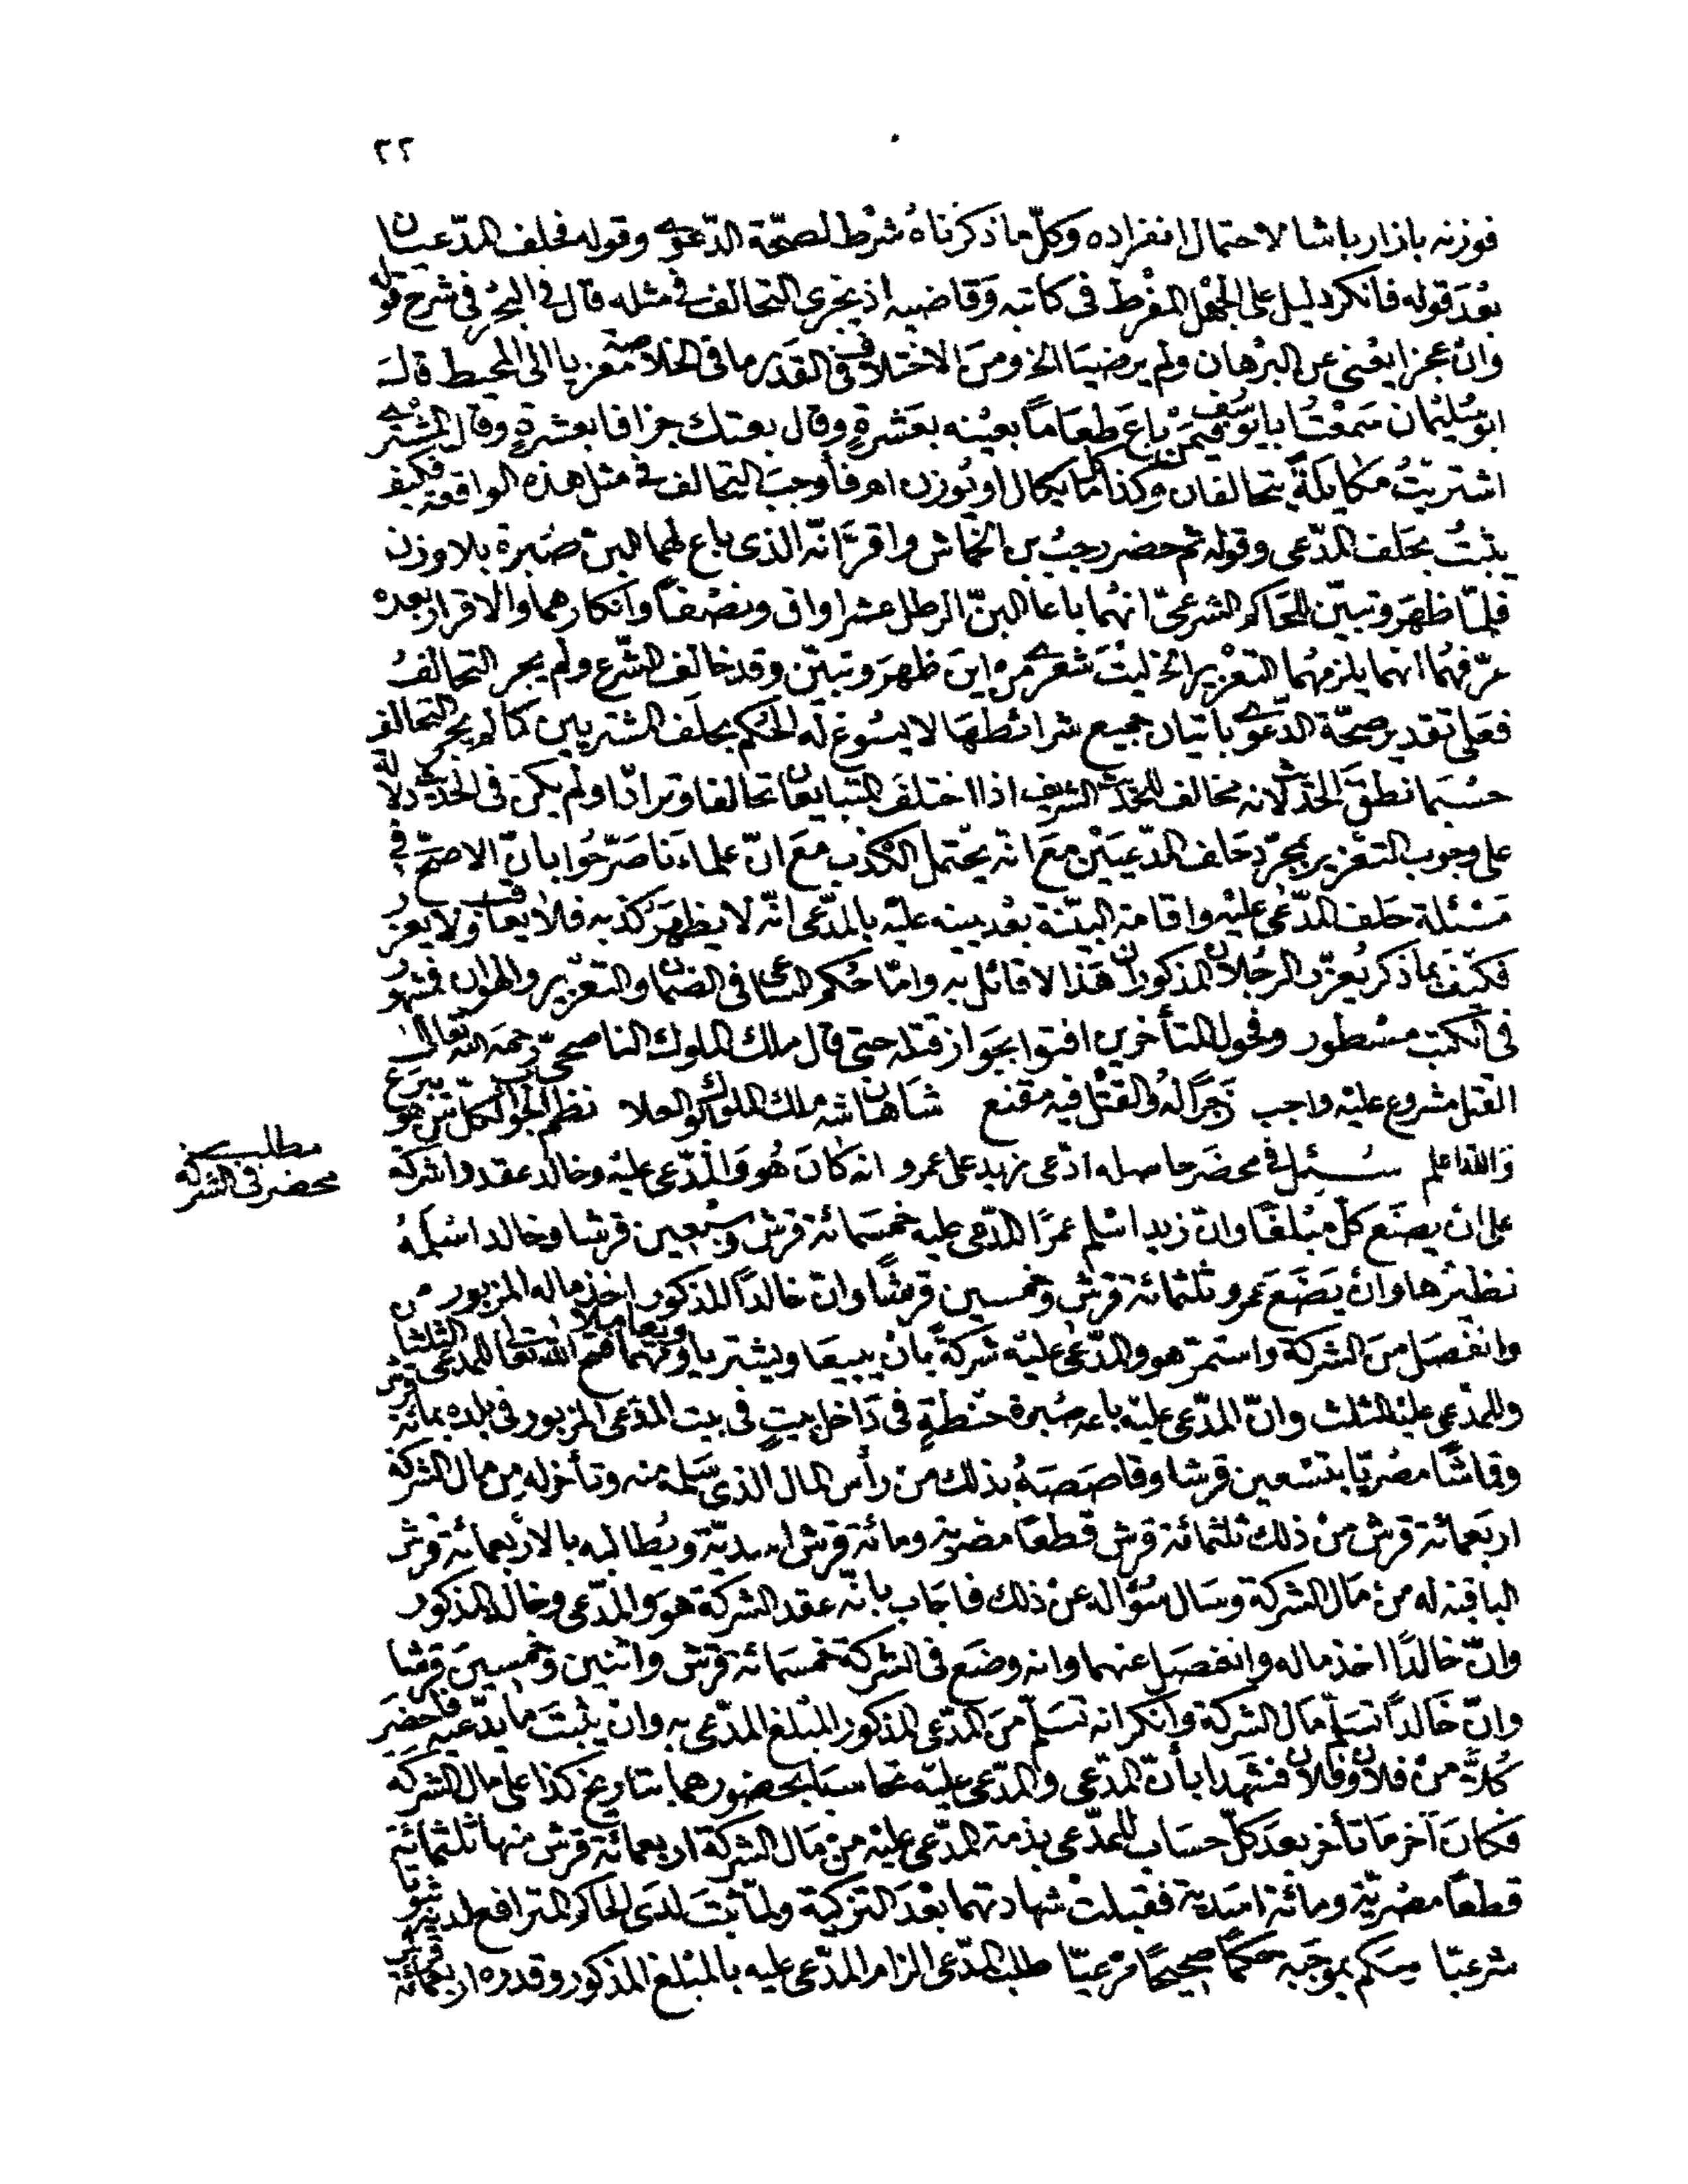 ٢٢
فوزنه بازار باشا لاحتمال انفراده وكلّ ما ذكرناه شرط لصحّة الدّعوى وقوله فحلف المدّعيان
بعد قوله فانكر دليل على الجهل المفرط فى كاتبه وقاضيه اذ يجرى التحالف فى مثله قال فى البحر فى شرح قوله
وان عجزا يعنى عن البرهان ولم يرضيا الخ ومن الاختلاف فى القدر ما فى الخلاصة معزيا الى المحيط قال
ابو سليمان سمعت ابا يوسف فيمن باع طعاما بعينه بعشرة وقال بعتك جزافا بعشرة وقال المشترى
اشتريت مكايلة يتحالفان وكذا كل ما يكال او يوزن اهـ فأوجب التحالف فى مثل هذه الواقعة فكيف
يثبت بحلف المدّعى وقوله ثم حضر رجب بن الخماش واقرّ انّه الذى باع لهما البن صبرة بلا وزن
فلمّا ظهر وتبيّن للحاكم الشرعىّ انهما باعا البنّ الرطل عشر اواق ونصفا وانكارهما والاقرار بعده
عرّفهما انهما يلزمهما التعزير الخ ليت شعرى من اين ظهر وتبيّن وقد خالف الشّرع ولم يجر التحالف
فعلى تقدير صحّة الدّعوى باتيان جميع شرائطها لا يسوغ له الحكم بحلف المشتريين كما لم يجر التحالف
حسبما نطق الحديث لانه مخالف للحديث الشريف اذا اختلف المتبايعان تحالفا وترادّا ولم يكن فى الحديث دلالة
على وجوب التعزير بمجرّد حلف المدّعيين مع انّه يحتمل الكذب مع انّ علماءنا صرّحوا بانّ الاصحّ فى
مسئلة حلف المدّعى عليه واقامة البيّنة بعد يمينه عليه بالمدّعى انّه لا يظهر كذبه فلا يعاقب ولا يعزر
فكيف بما ذكر يعزّر الرجلان المذكوران هذا لا قائل به وامّا حكم الساعى فى الضمان والتعزير والهوان فمشهور
فى الكتب مسطور وفحول المتأخرين افتوا بجواز قتله حتى قال ملك الملوك الناصحىّ رحمه الله تعالى
القتل مشروع عليه واجب زجرا له والقتل فيه مقنع شاهان شه ملك الملوك ابو العلا نظم الجواب لكل من هو يبرع
والله اعلم سئل فى محضر حاصله ادّعى زيد على عمرو انه كان هو والمدّعى عليه وخالد عقدوا شركة
على ان يضع كلّ مبلغا وان زيدا سلم عمرا المدّعى عليه خمسمائة قرش وسبعين قرشا وخالد اسلمه
نظيرها وان يضع عمرو ثلثمائة قرش وخمسين قرشا وان خالدا المذكور اخذ ماله المزبور من
وانفصل من الشركة واستمرّ هو والمدّعى عليه شركة بأن يبيعا ويشتريا ويتعاملا ومهما فتح الله تعالى للمدعى الثلثان
وللمدّعى عليه الثلث وانّ المدّعى عليه باعه صبرة حنطة فى داخل بيت فى بيت المدّعى المزبور فى بلده بمائة قرش
وقماشا مصريّا بتسعين قرشا وقاصصه بذلك من رأس المال الذى سلمه منه وتأخر له من مال الشركة
اربعمائة قرش من ذلك ثلثمائة قرش قطعا مصرية ومائة قرش اسديّة ويطالبه بالاربعمائة قرش
الباقية له من مال الشركة وسال سؤاله عن ذلك فاجاب بانّه عقد الشركة هو والمدّعى وخالد المذكور
وانّ خالدا اخذ ماله وانفصل عنهما وانه وضع فى الشركة خمسمائة قرش واثنين وخمسين قرشا
وانّ خالدا تسلّم مال الشركة وانكر انه تسلّم من المدّعى المذكور المبلغ المدّعى به وان يثبت ما يدّعيه فاحضر
كلاّ من فلان وفلان فشهدا بأنّ المدّعى والمدّعى عليه تحاسبا بحضورهما بتاريخ كذا على مال الشركة
فكان آخر ما تأخر بعد كلّ حساب للمدّعى بذمة المدّعى عليه من مال الشركة اربعمائة قرش منها ثلثمائة
قطعا مصريّة ومائة اسدية فقبلت شهادتهما بعد التزكية ولمّا ثبت لدى الحاكم المترافع لديه ثبوتا
شرعيّا حكم بموجبه حكما صحيحا مرعيّا طلب المدّعى الزام المدّعى عليه بالمبلغ المذكور وقدره اربعمائة
مطلب
محضر فى الشركة